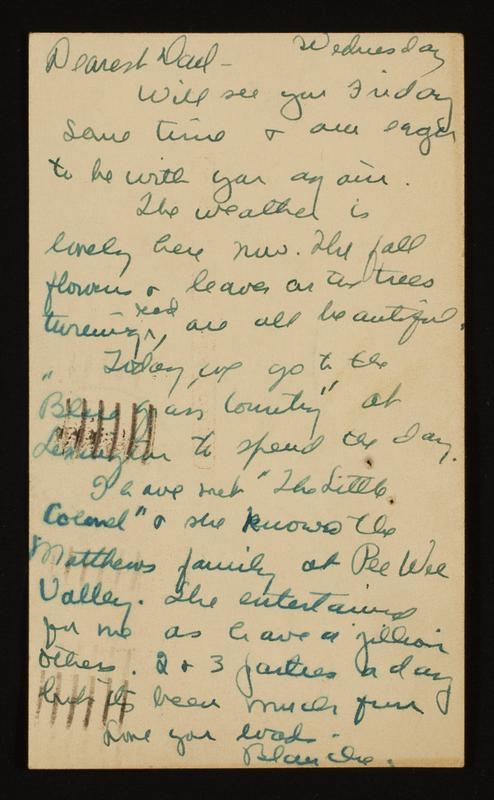 Dearest Dad - Wednesday
Will see you Friday
some time & am eager
to be with you again.
The weather is
lovely here now. The fall
flowers & leaves on the trees
turning red, are all beautiful.
Today, we go to the
"Blue Grass Country" at
Lexington to spend the day.
I have met "The Little
Colonel" & she knows the
Matthews family at Pee Wee
Valley. She entertained
for me as have a jillion
others. 2 & 3 parties a day
but it's been much fun
Love you loads -
Blanche.